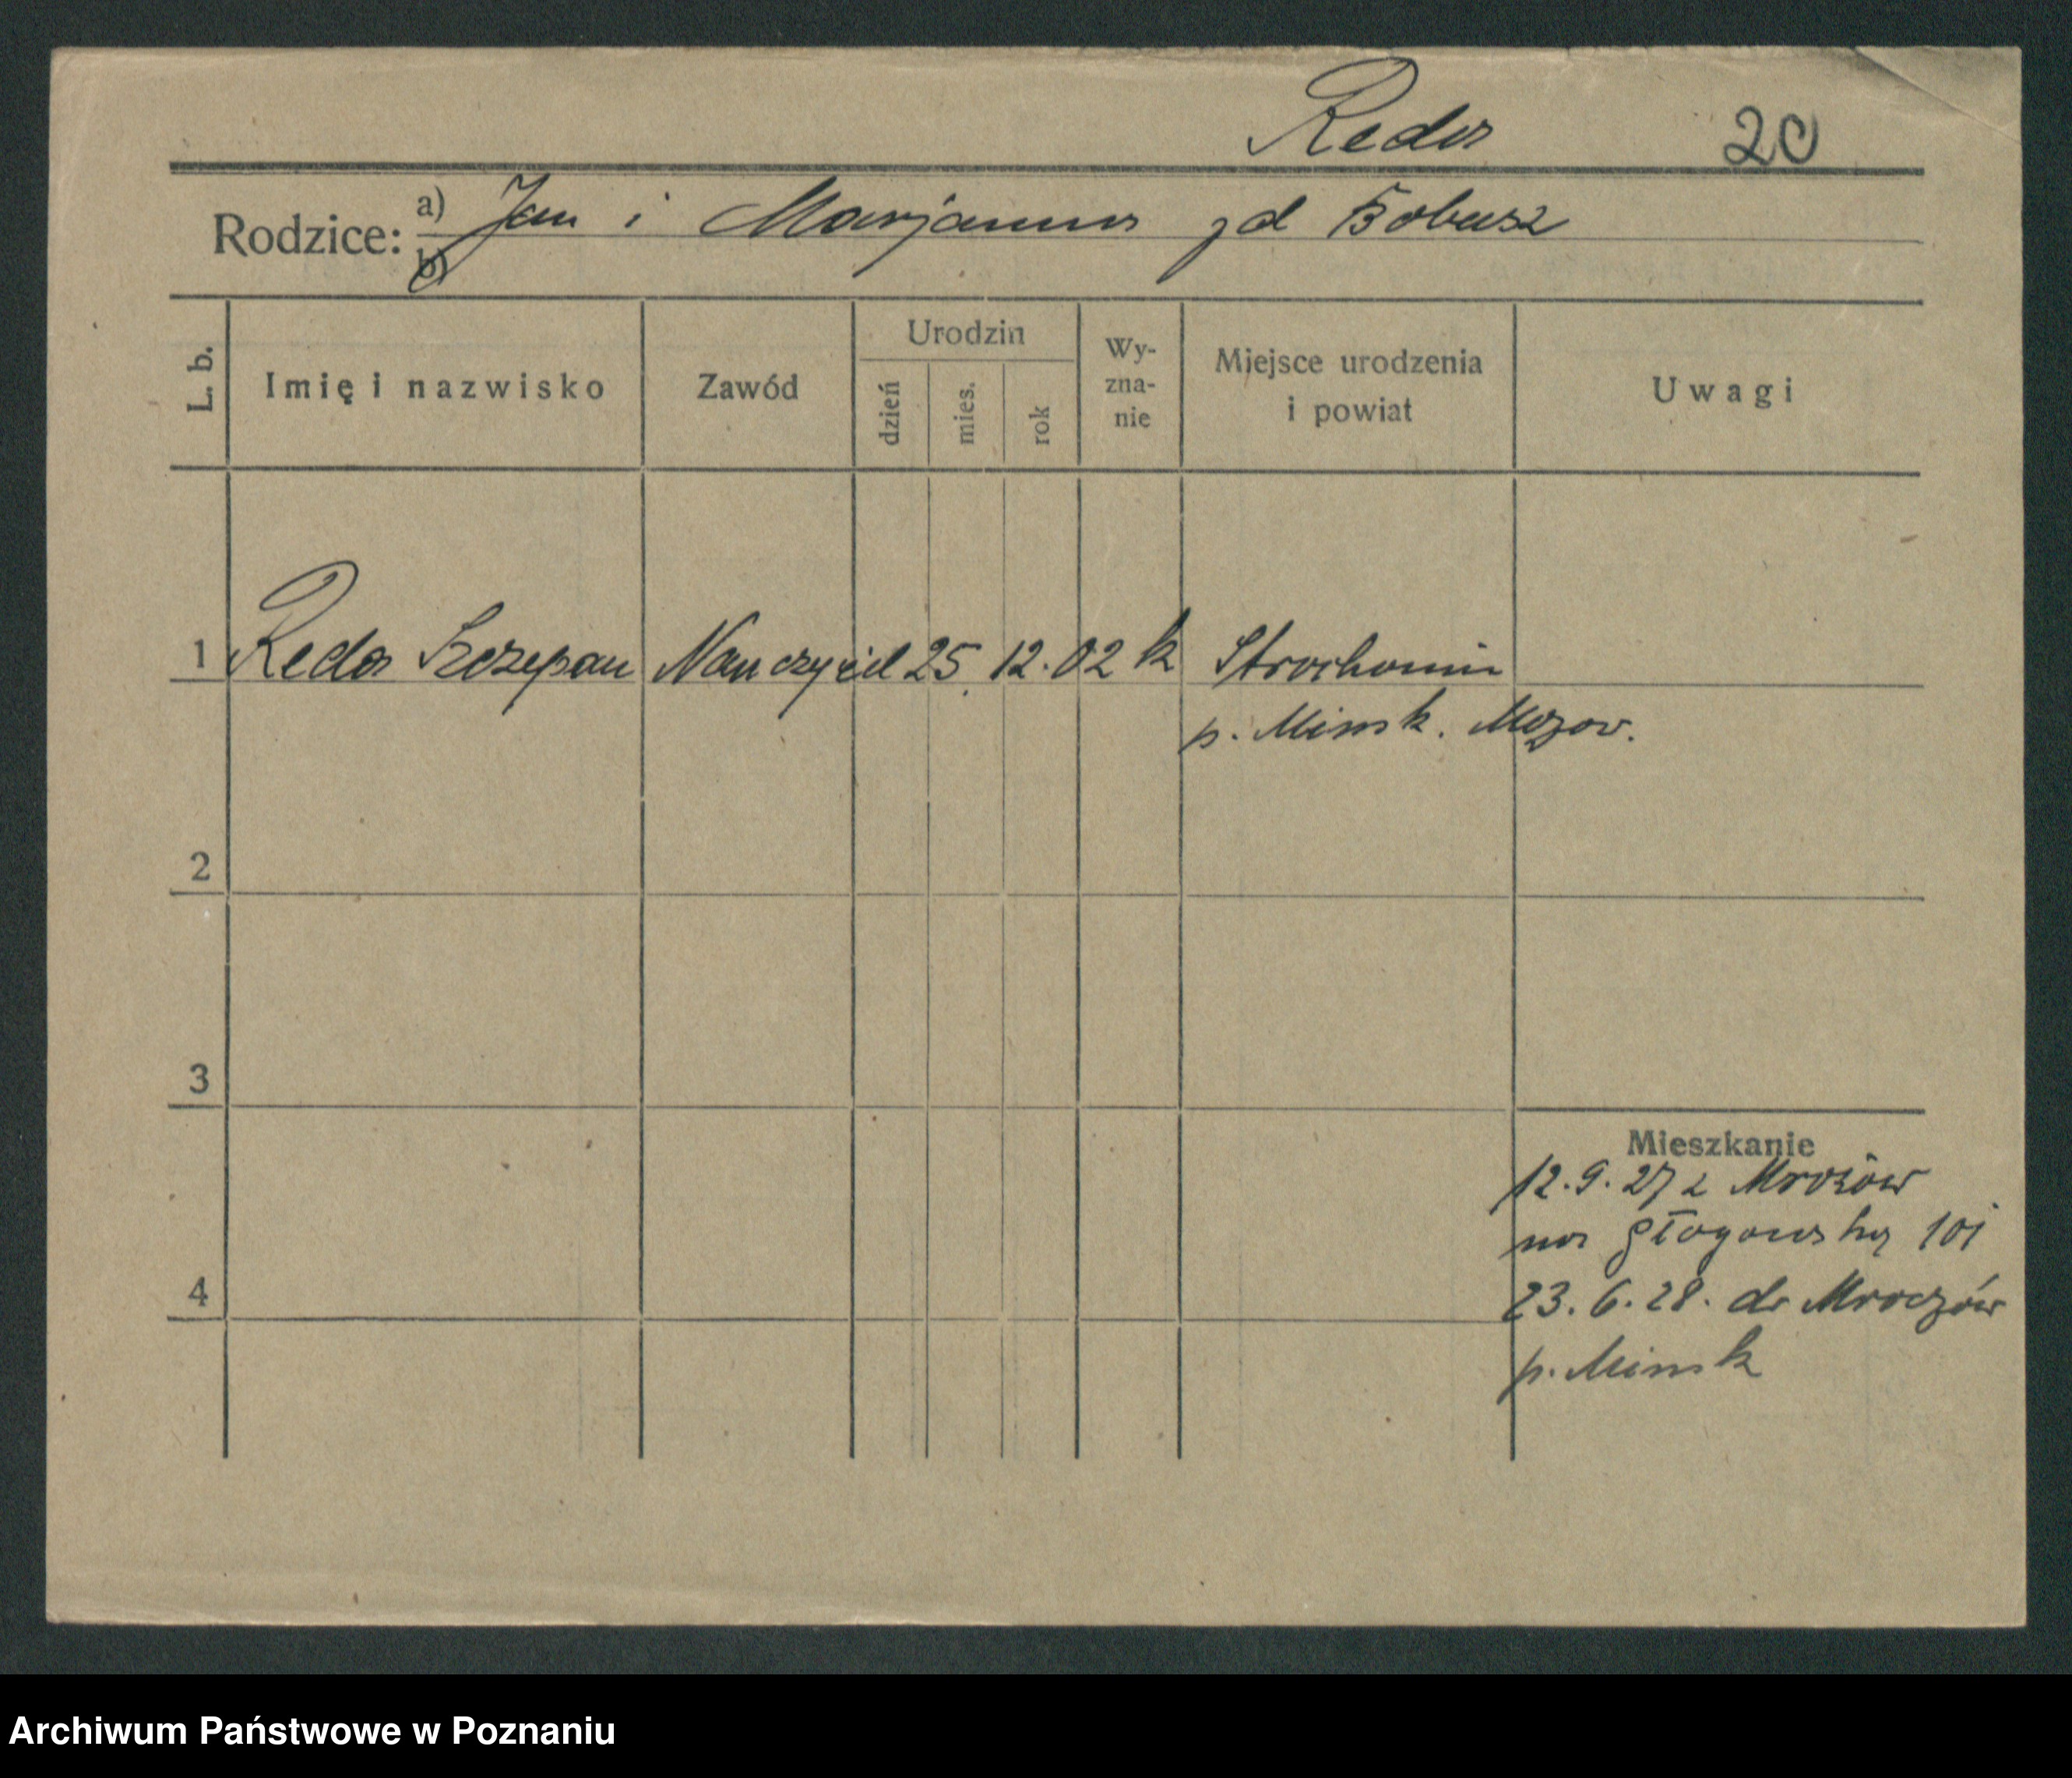 Reda 20
Rodzice: a) Jan i Marjanna zd Bobusz
b)
L. b. Imię i nazwisko Zawód Urodzin dzień mies. rok Wy-zna-nie Miejsce urodzenia i powiat Uwagi
1 Reda Szczepan Nauczyciel 25. 12. 02 k Strochomin
p. Minsk. Mazow.
2
3
Mieszkanie
12.9.27 z Mrozów
na Głogowską 101
4
23.6.28. do Mroczów
p. Minsk
Archiwum Państwowe w Poznaniu